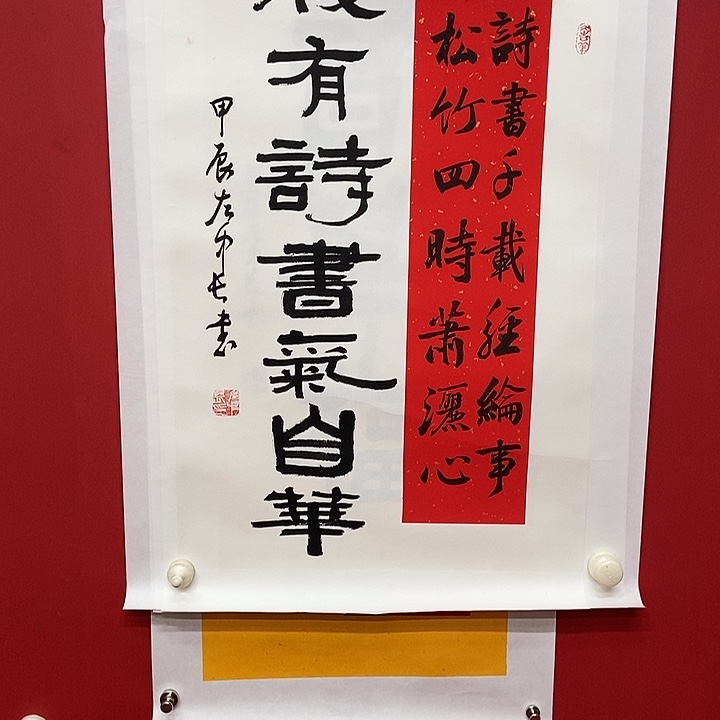 詩書千載經綸事
松竹四時蕭灑心
有詩書氣自華
甲辰
書